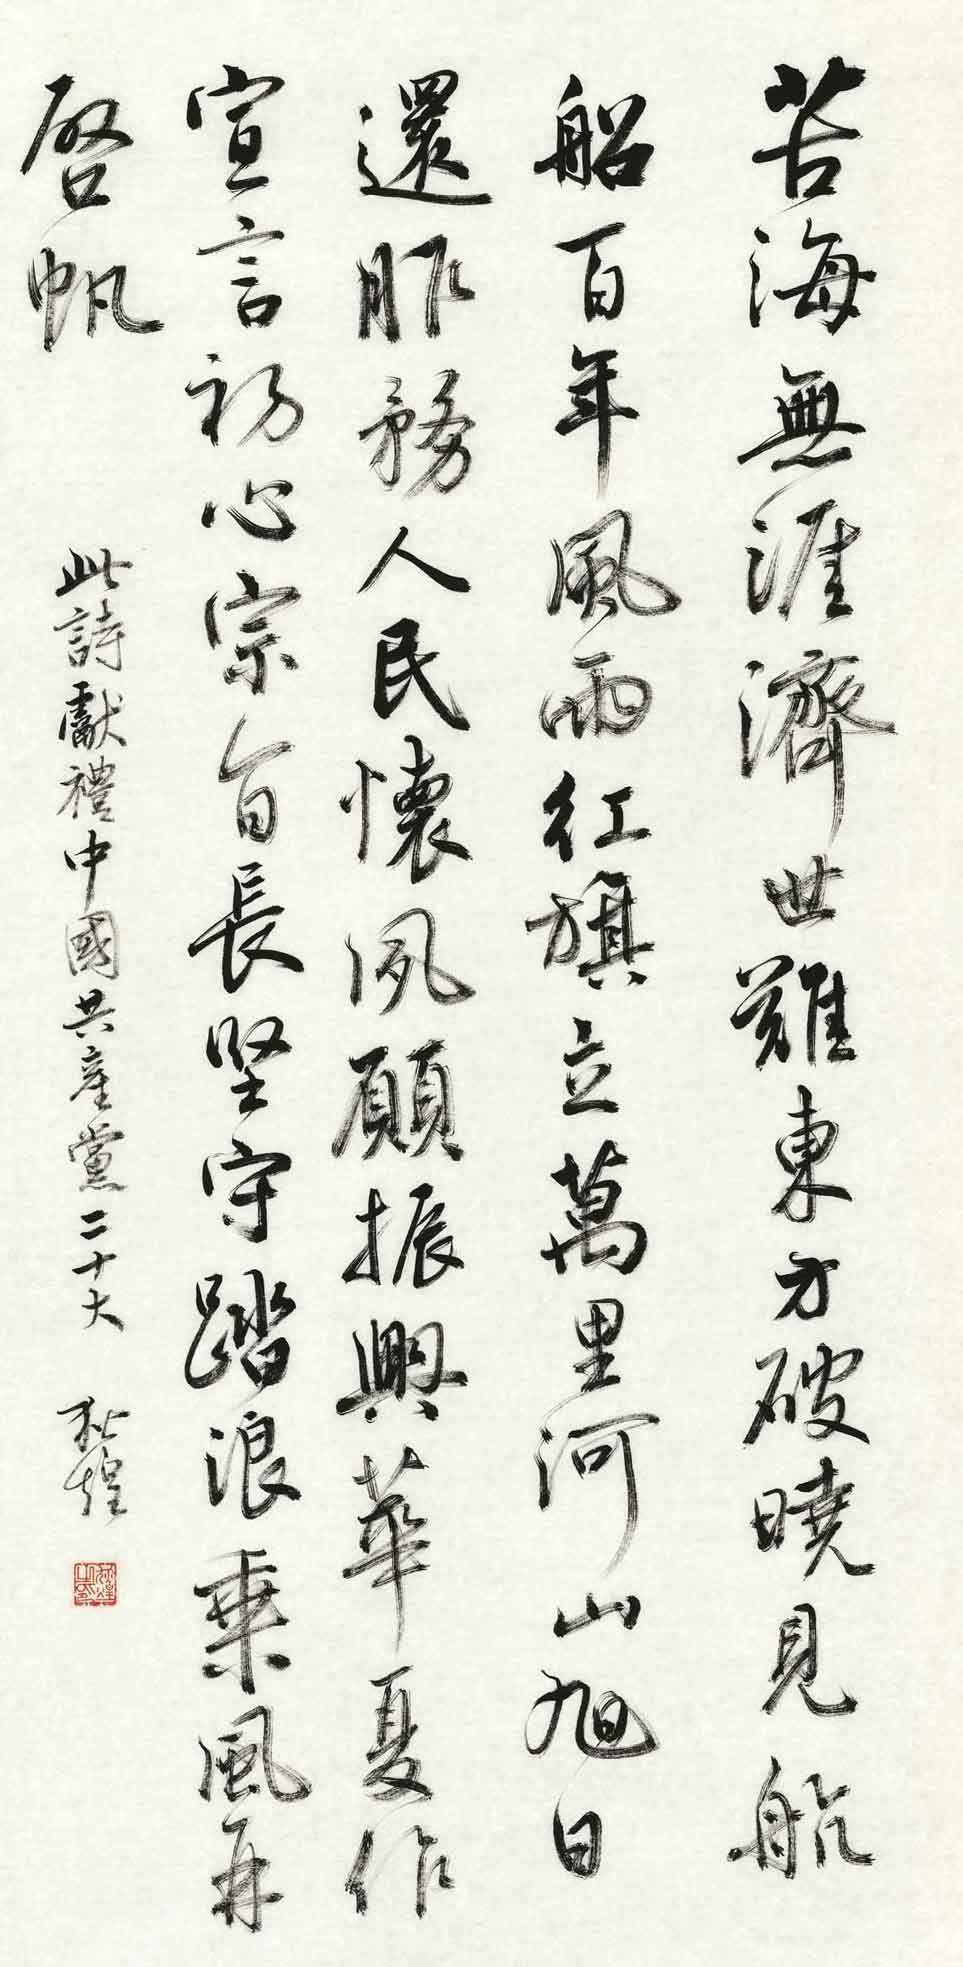 苦海無涯濟世難東方破曉見航
船百年風雨紅旗立萬里河山旭日
還服務人民懷夙願振興華夏作
宣言初心宗旨長堅守踏浪乘風再
啓帆
此詩獻禮中國共產黨二十大